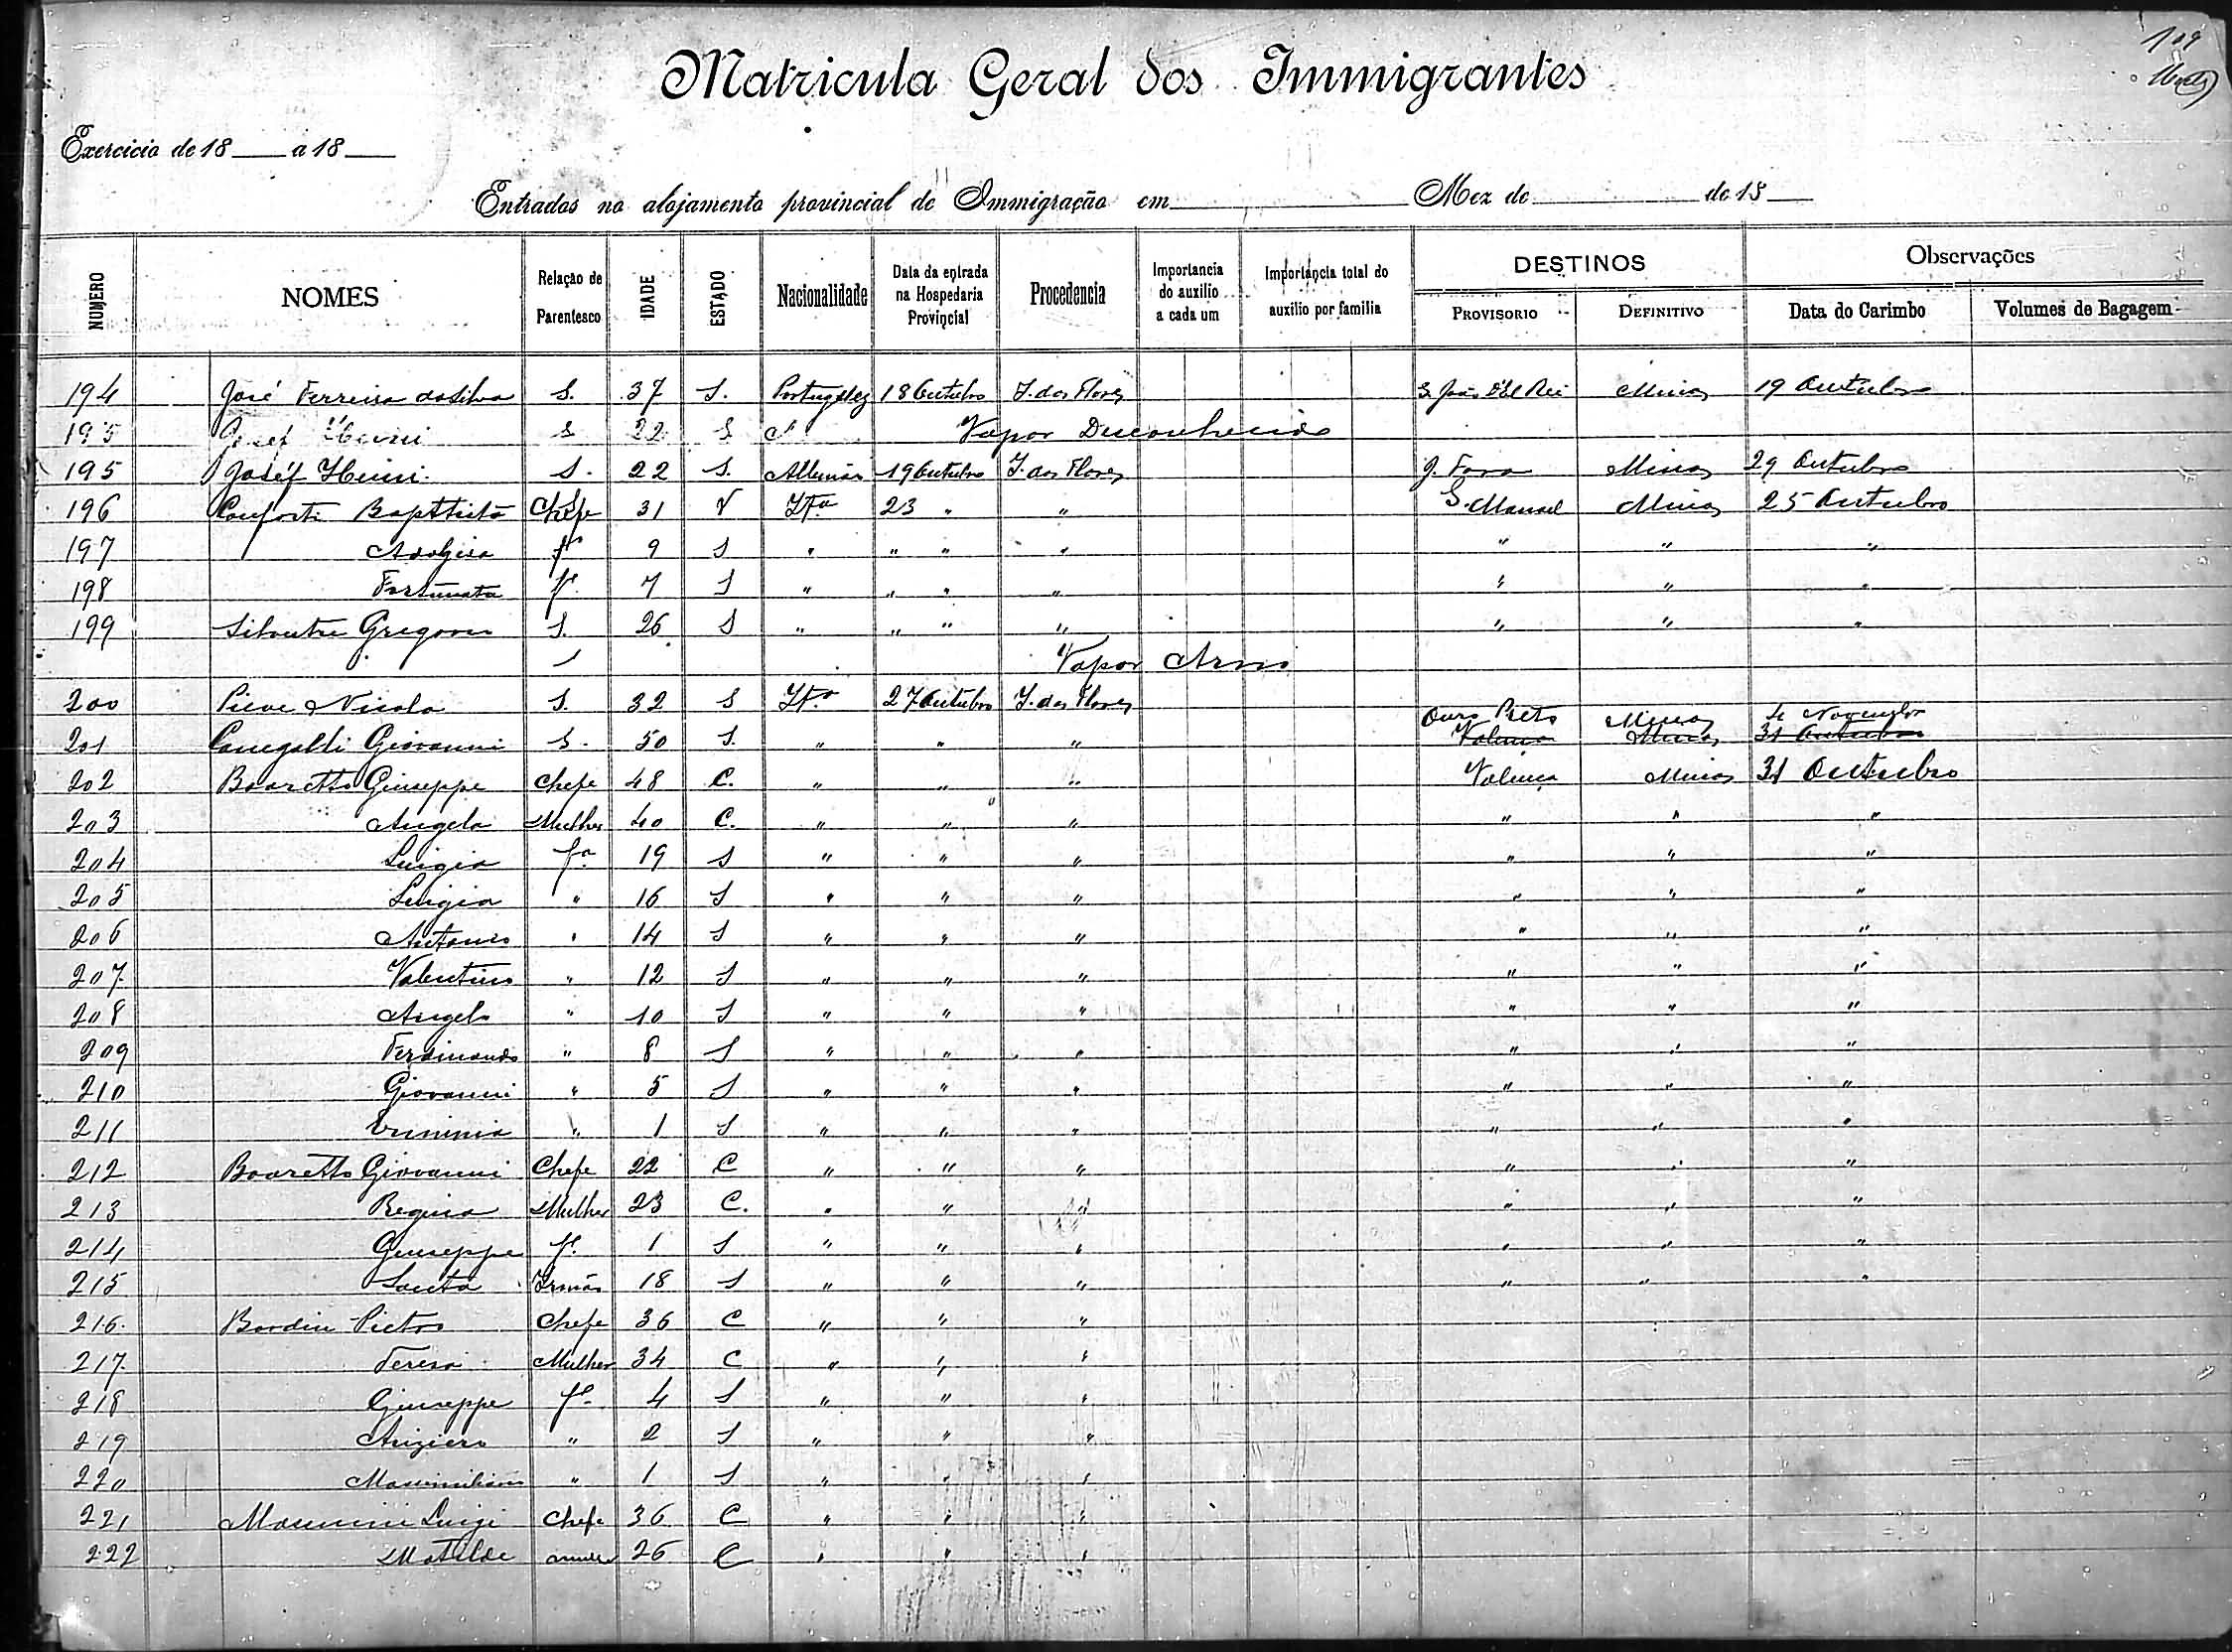 109
Matricula Geral dos Immigrantes
Exercicio de 18 a 18
Entrados no alojamento provincial de Immigração em Mez de de 18
NUMERO NOMES Relação de Parentesco IDADE ESTADO Nacionalidade Data da entrada na Hospedaria Provincial Procedencia Importancia do auxilio a cada um Importancia total do auxilio por familia DESTINOS PROVISORIO DEFINITIVO Observações Data do Carimbo Volumes de Bagagem
194 José Ferreira da Silva S. 37 S. Portuguez 18 Outubro I. das Flores S. João D'El Rei Minas 19 Outubro
195 Josef Heini S 22 S A Vapor Desconhecido
195 Josef Heini S. 22 S. Allemão 19 Outubro I. das Flores J. Fora Minas 29 Outubro
196 Conforti Baptista Chefe 31 V Itª 23 " " S. Manoel Minas 25 Outubro
197 fª 9 S " " " " " " "
198 Fortunata fª 7 S " " " " " " "
199 Silvestre S. 26 S " " " " " " "
Vapor Arno
200 Pieve Nicola S. 32 S Itª 27 Outubro I. das Flores Ouro Preto Minas 4 Novembro
201 Giovanni S. 50 S. " " " Valença Minas 31 Outubro
202 Boaretto Giuseppe Chefe 48 C. " " " Valença Minas 31 Outubro
203 Angela Mulher 40 C. " " " " " "
204 Luigia fª 19 S " " " " " "
205 Luigia " 16 S " " " " " "
206 Antonio " 14 S " " " " " "
207 Valentino " 12 S " " " " " "
208 Angelo " 10 S " " " " " "
209 Ferdinando " 8 S " " " " " "
210 Giovanni " 5 S " " " " " "
211 " 1 S " " " " " "
212 Boaretto Giovanni Chefe 22 C " " " " " "
213 Regina Mulher 23 C. " " " " " "
214 Giuseppe fº 1 S " " " " " "
215 Santa Irmão 18 S " " " " " "
216 Bordin Pietro Chefe 36 C " " "
217 Teresa Mulher 34 C " " "
218 Giuseppe fº 4 S " " "
219 " 2 S " " "
220 Massimiliano " 1 S " " "
221 Luigi Chefe 36 C " " "
222 Matilde 26 C " " "